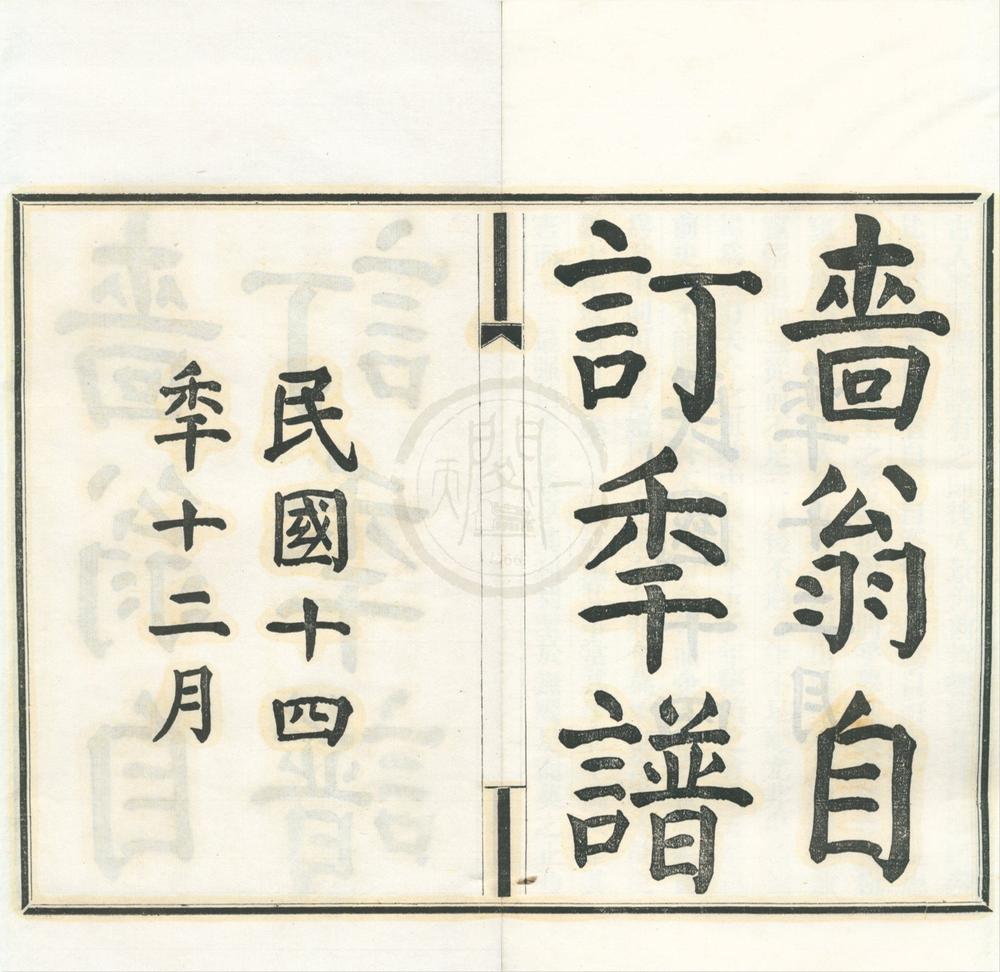 嗇翁自
訂秊譜
民國十四
秊十二月